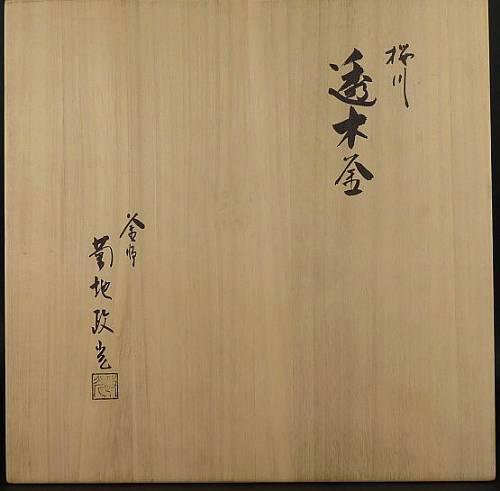 桜川
透木釜
釜師
菊地政光